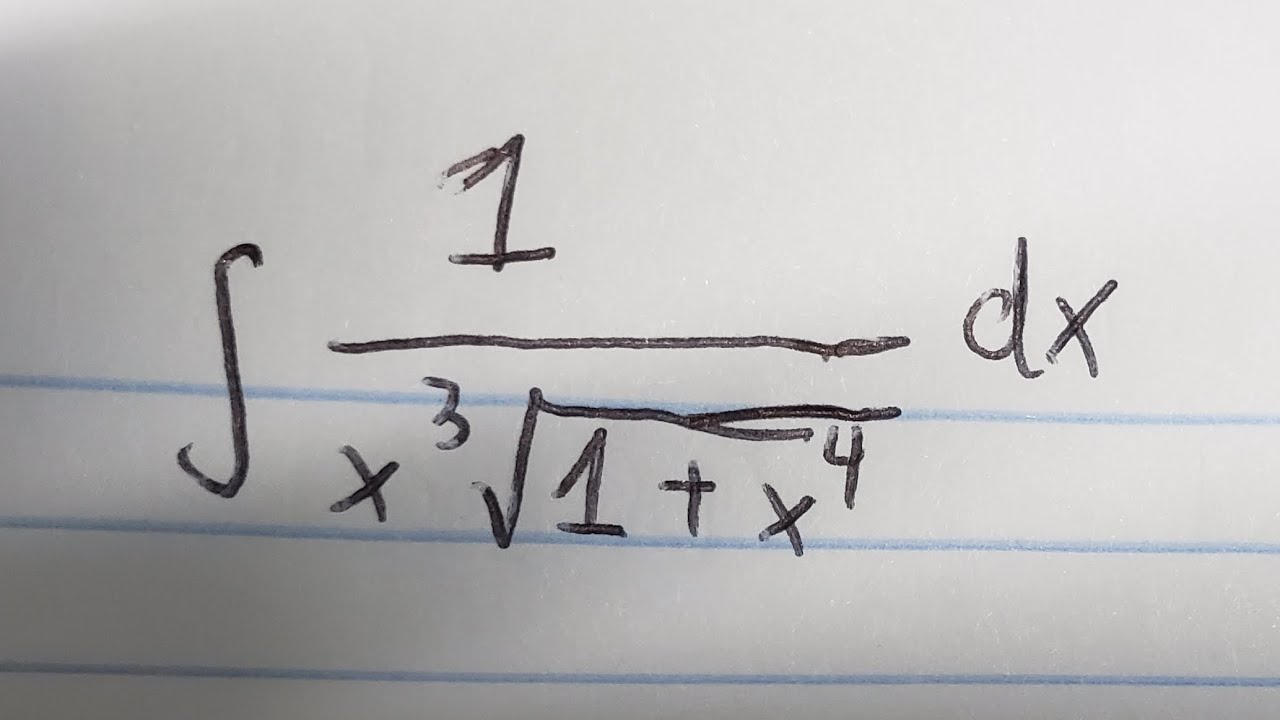 ∫ 1 / (x³ √(1 + x⁴)) dx